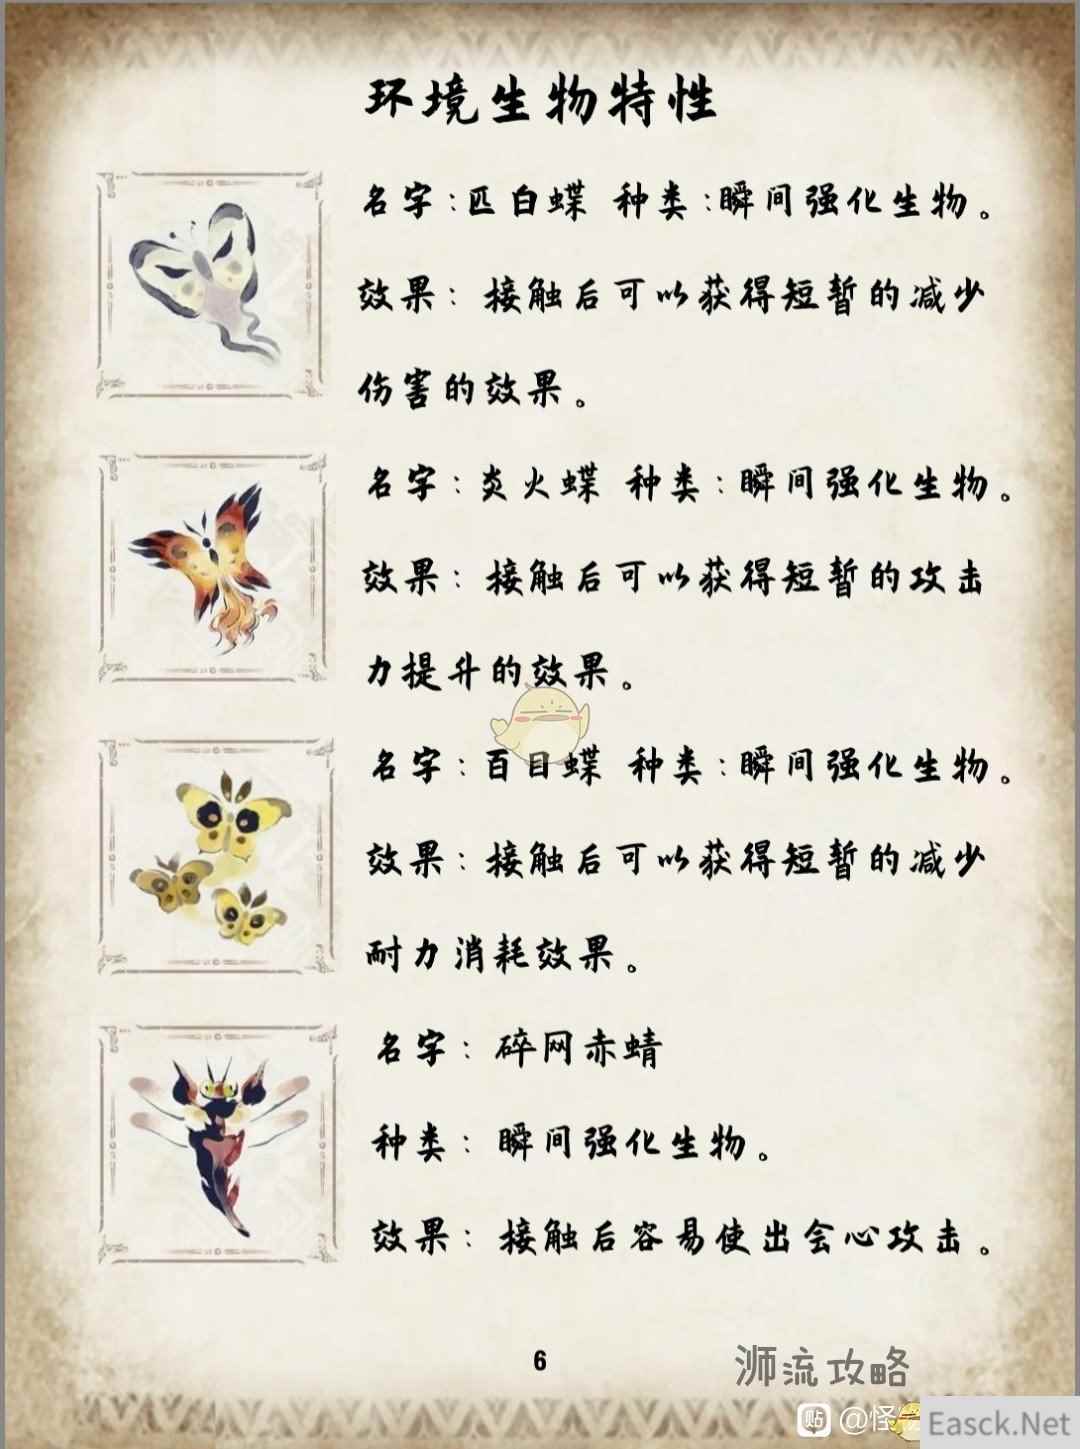 环境生物特性
名字:匹白蝶 种类:瞬间强化生物。
效果: 接触后可以获得短暂的减少
伤害的效果。
名字: 炎火蝶 种类: 瞬间强化生物。
效果: 接触后可以获得短暂的攻击
力提升的效果。
名字: 百目蝶 种类: 瞬间强化生物。
效果: 接触后可以获得短暂的减少
耐力消耗效果。
名字: 碎网赤蜻
种类: 瞬间强化生物。
效果: 接触后容易使出会心攻击。
6
浉流攻略
贴 @怪
Easck.Net